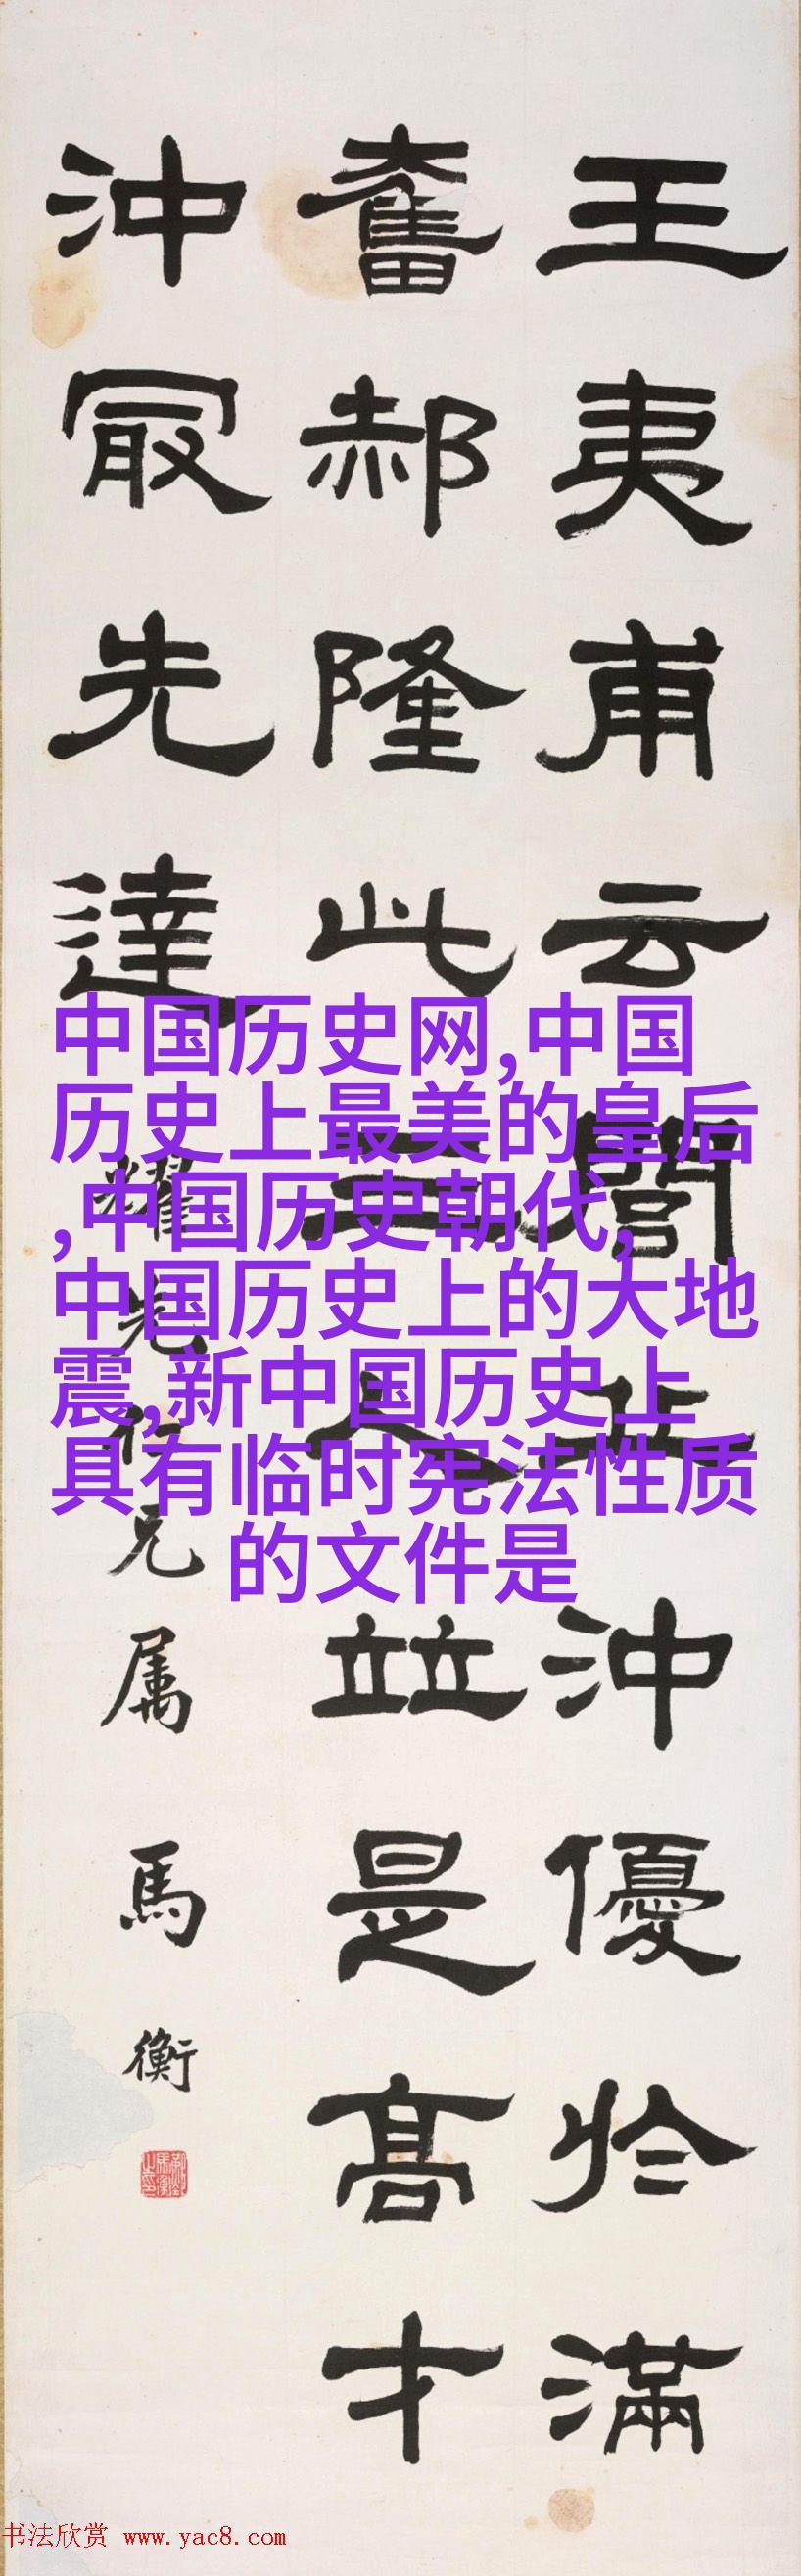 王夷甫云閭丘沖優於滿
奮郝隆此三人竝是高才
沖冣先達
耀先仁兄属 馬衡
中国历史网,中国
历史上最美的皇后
,中国历史朝代,
中国历史上的大地
震,新中国历史上
具有临时宪法性质
的文件是
书法欣赏 www.yac8.com